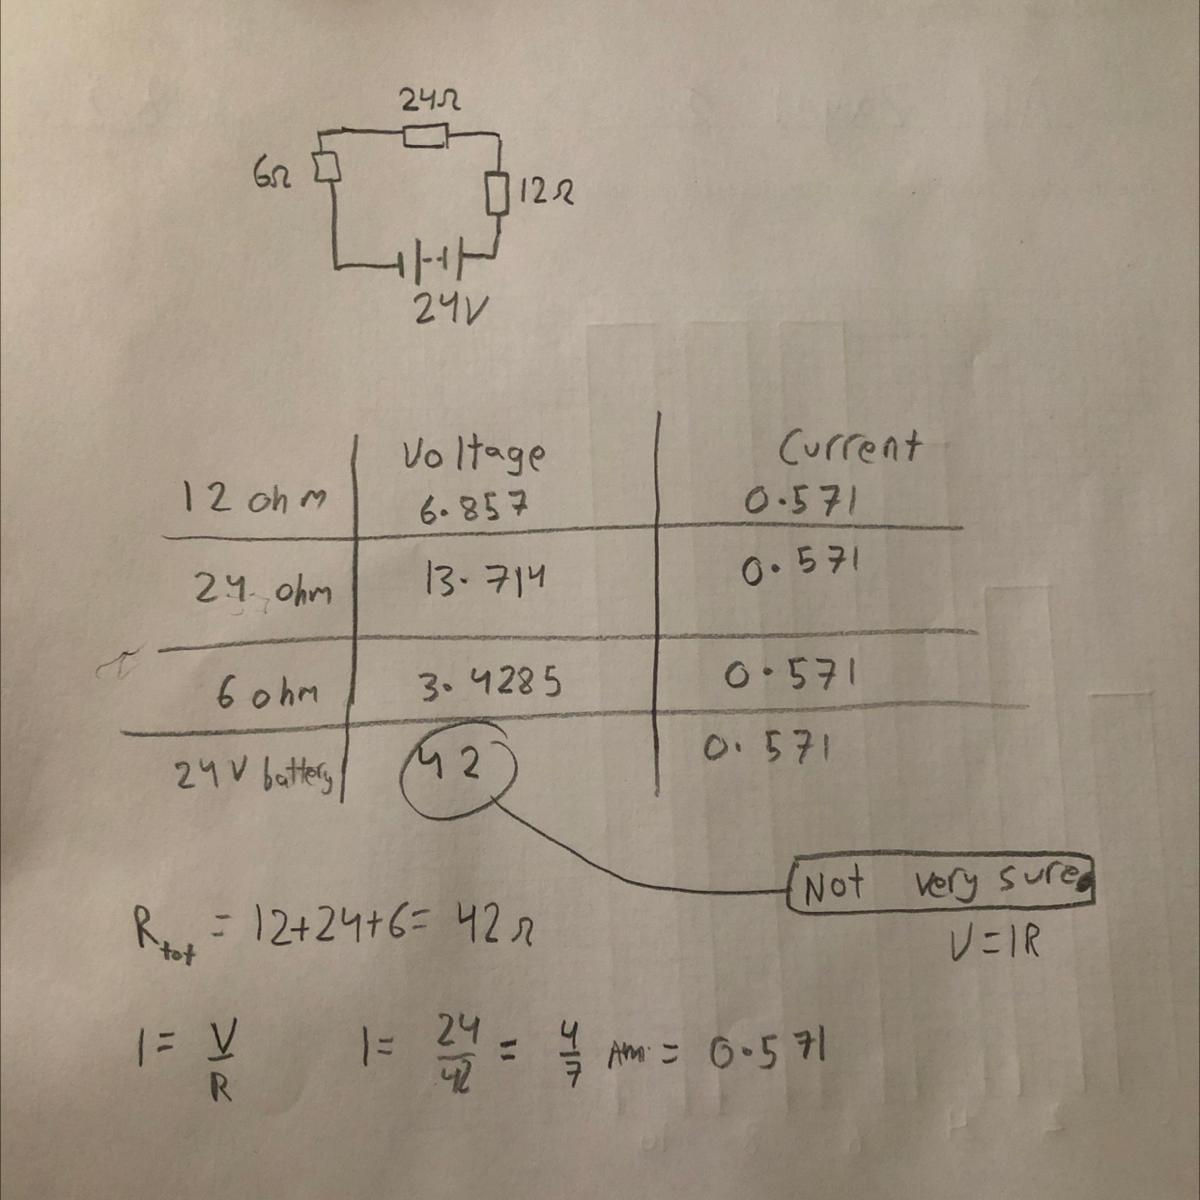 24Ω
6Ω
12Ω
24V
Voltage Current
12 ohm 6.857 0.571
24 ohm 13.714 0.571
6 ohm 3.4285 0.571
24V battery 42 0.571
Not very sure.
R tot = 12+24+6= 42Ω
V=IR
I= V/R I= 24/42 = 4/7 Am. = 0.571